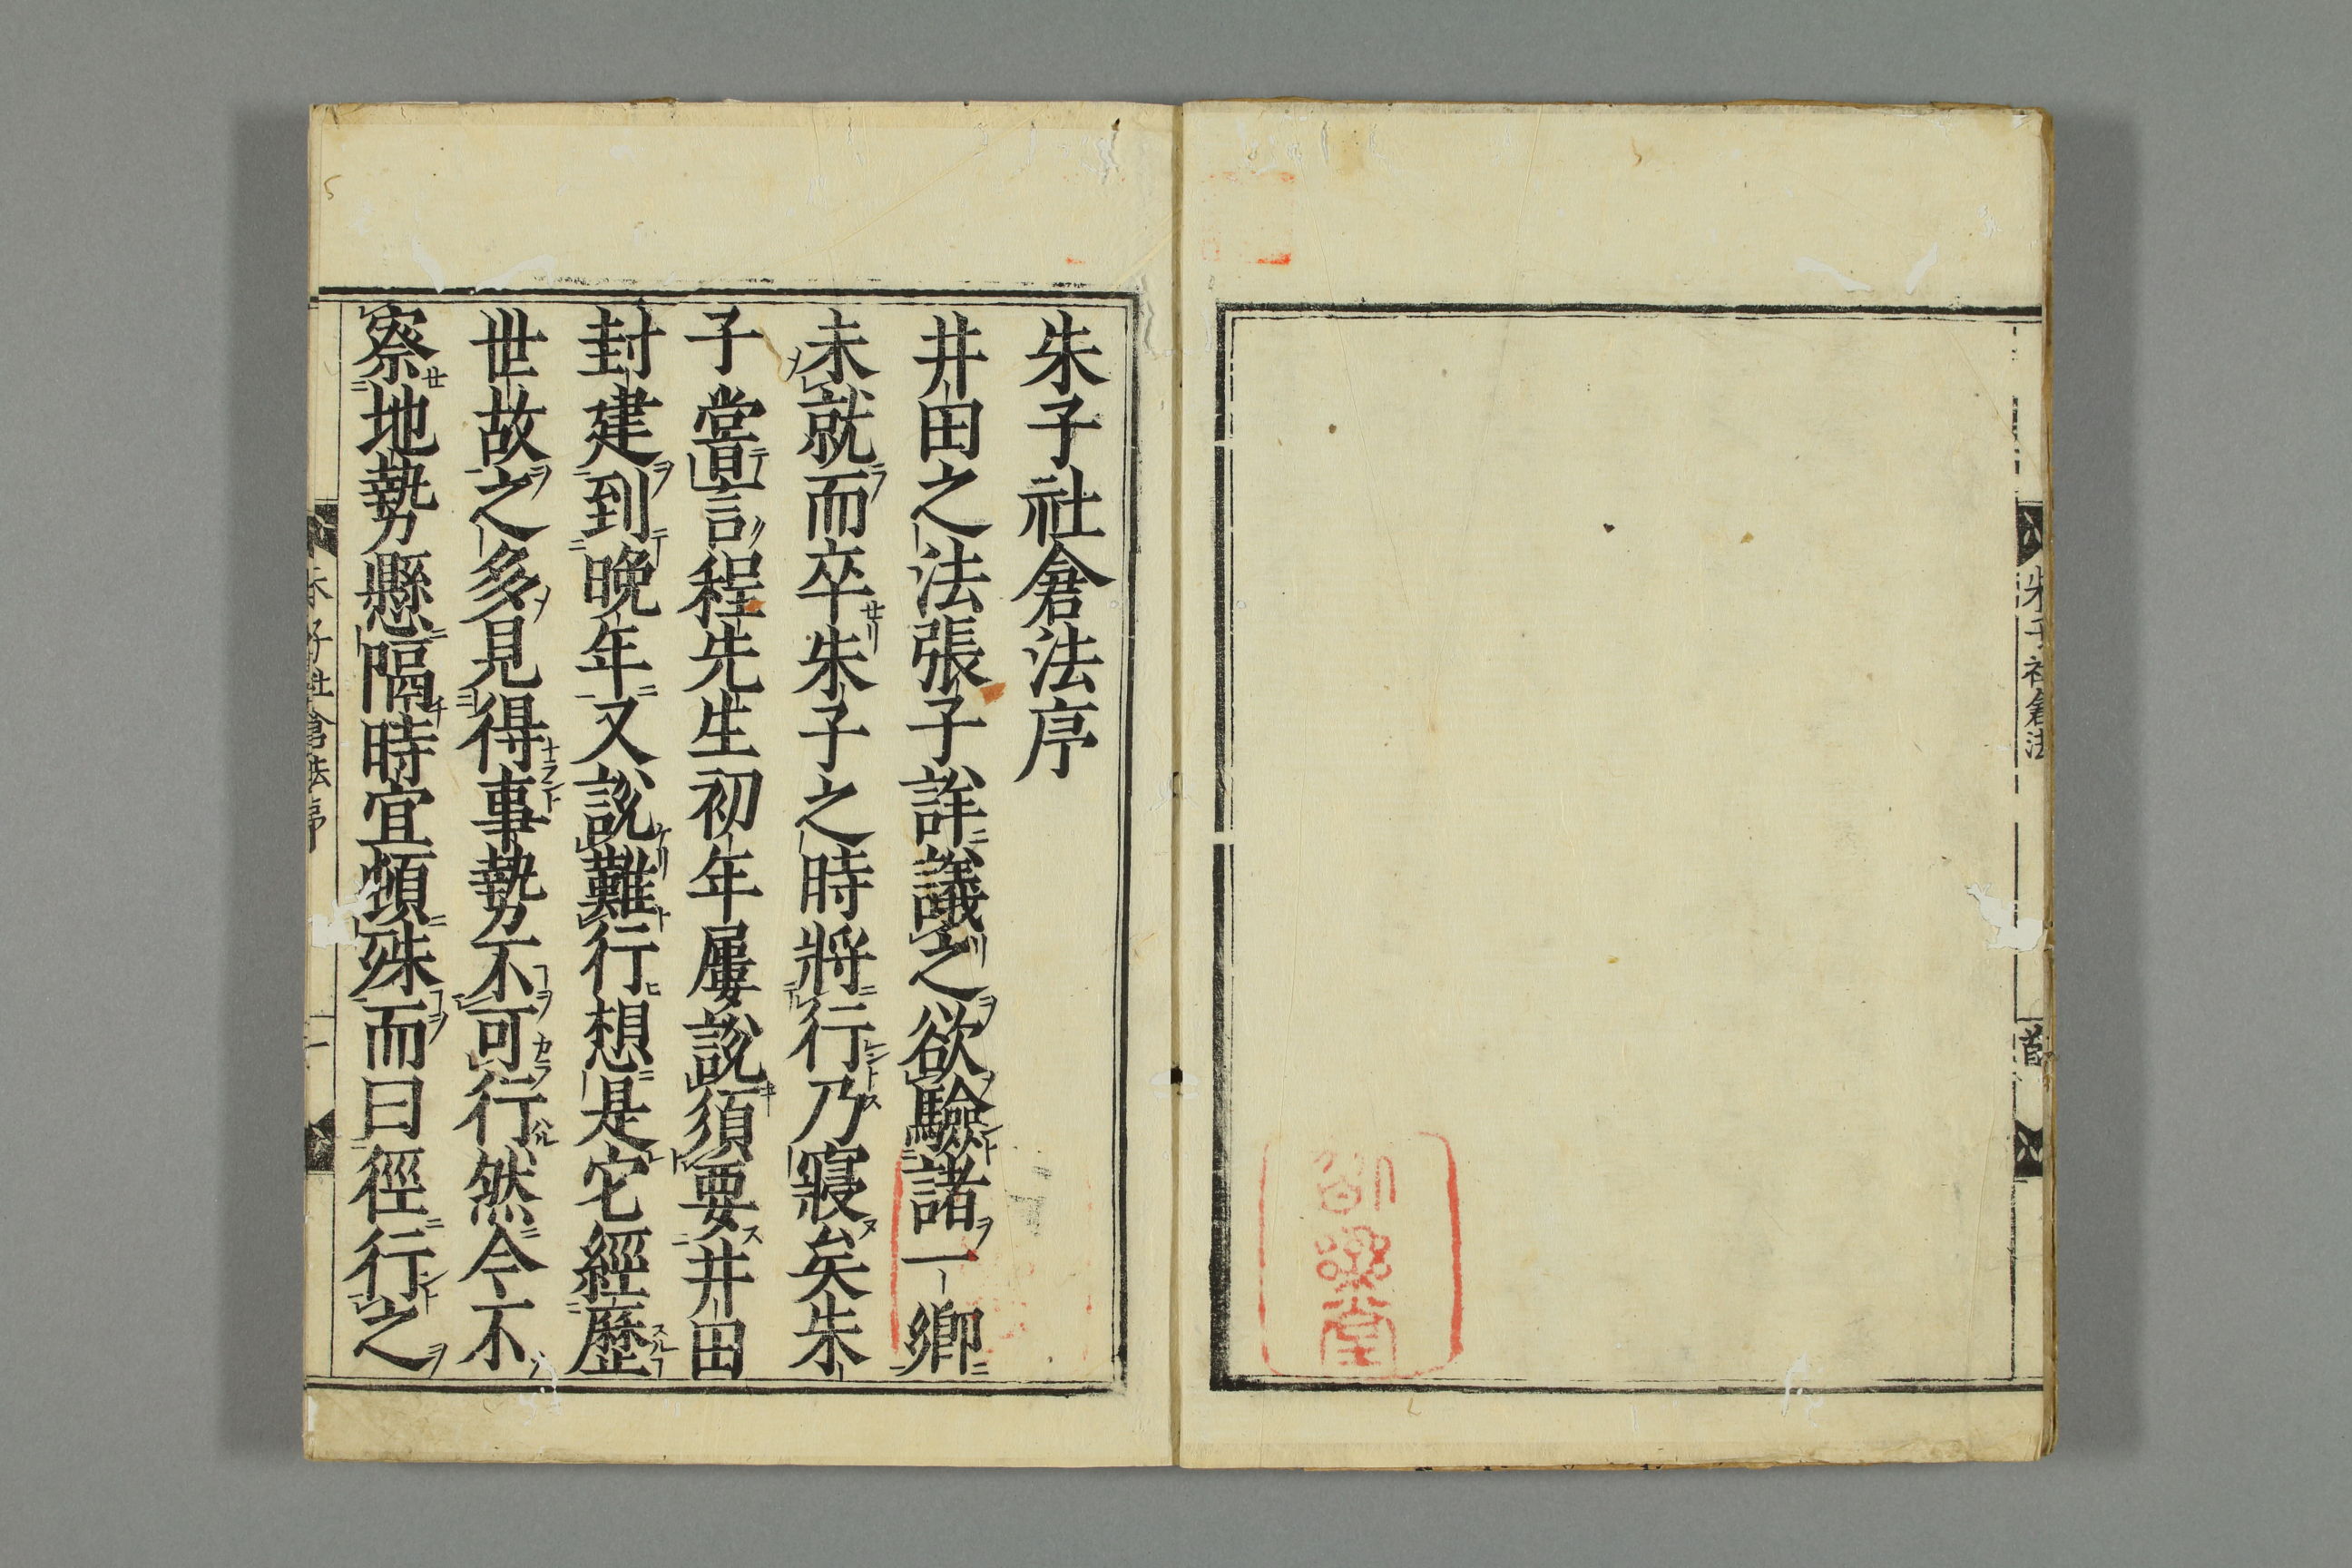 朱子社倉法
首
朱子社倉法序
井田之法張子詳議之欲驗諸一鄉
未就而卒朱子之時將行乃寢矣朱
子嘗言程先生初年屢說須要井田
封建到晚年又說難行想是它經歷
世故之多見得事勢不可行然今不
察地勢懸隔時宜頓殊而曰徑行之
朱子社倉法序
一